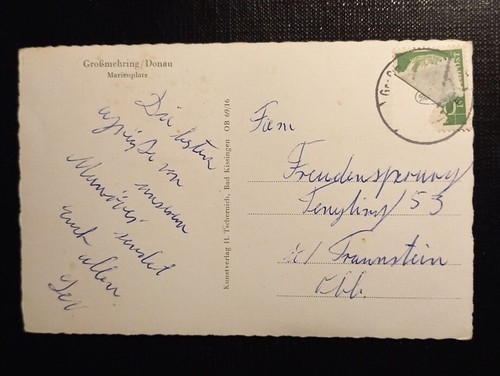 Großmehring/Donau
Marienplatz
Die besten
Grüße von
unserem
Manöver sendet
Euch allen
Kunstverlag H. Tschernich, Bad Kissingen OB 69/16
Fam
Freudensprung
53
b/ Traunstein
Obb.